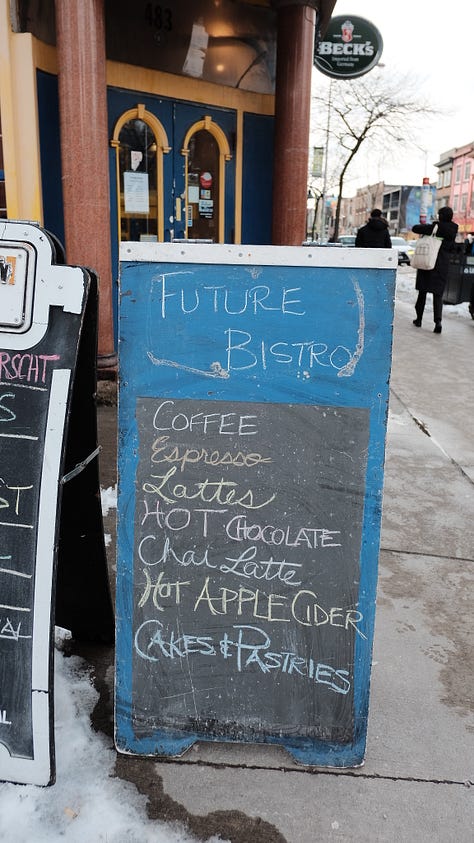 483
BECK'S
Imported from
Germany
FUTURE
BISTRO
COFFEE
Espresso
Lattes
HOT CHOCOLATE
Chai Latte
HOT APPLE CIDER
CAKES & PASTRIES